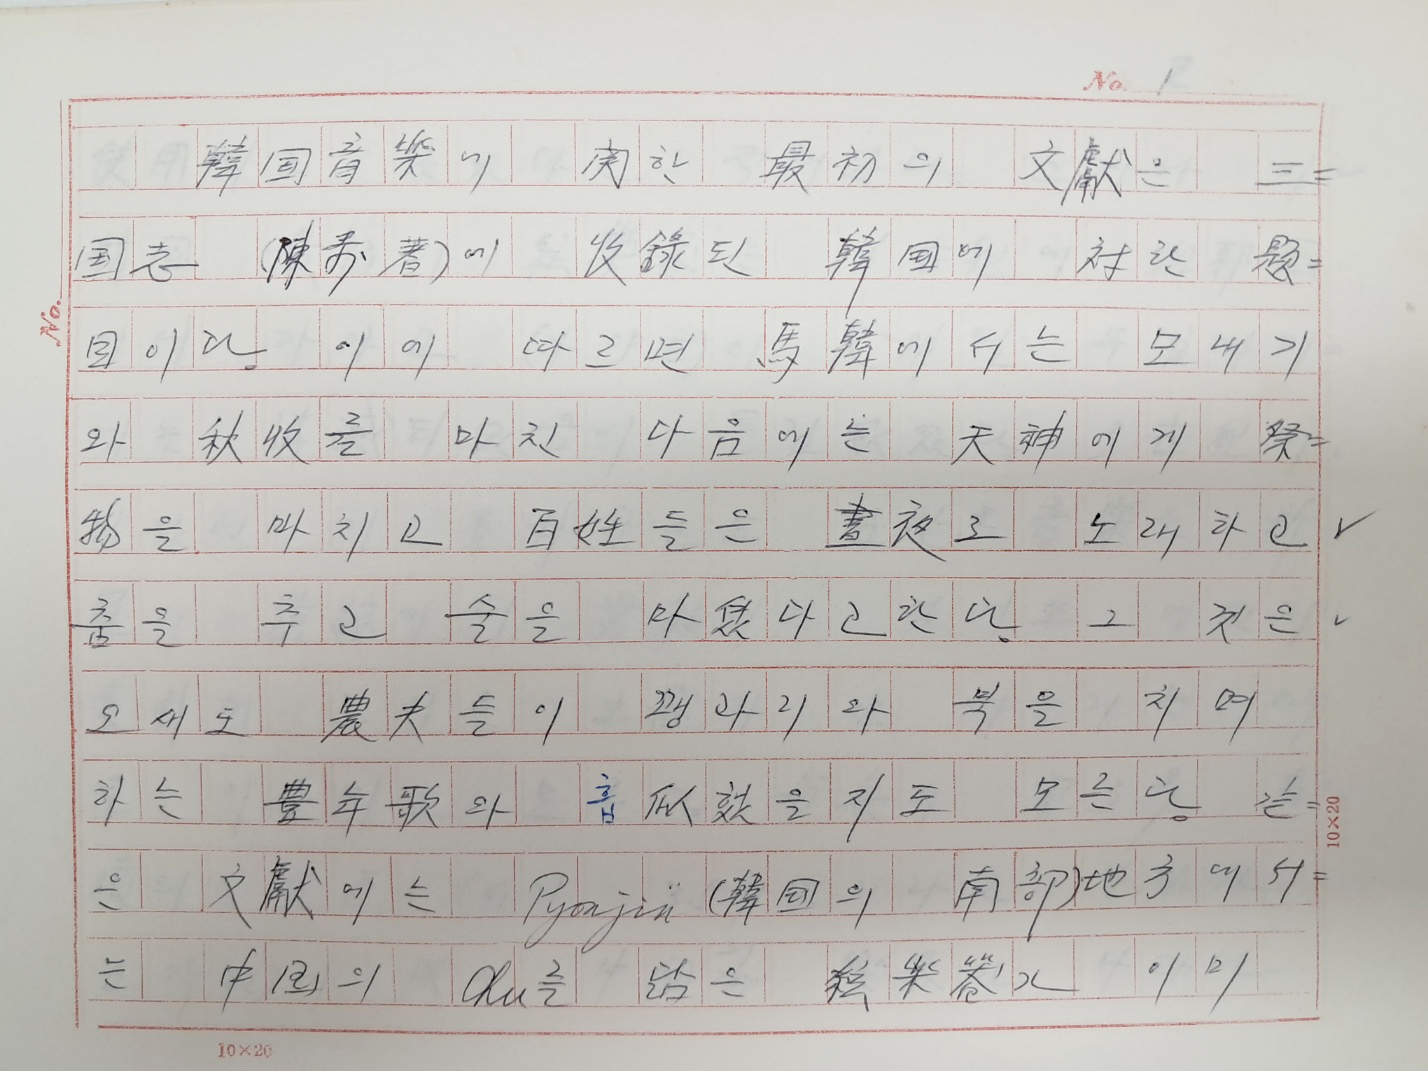 No. 1
韓国音樂에 関한 最初의 文獻은 三=
国志 (陳寿著)에 收錄된 韓国에 対한 題=
目이다. 이에 따르면 馬韓에서는 모내기
와 秋收를 마친 다음에는 天神에게 祭=
物을 마치고 百姓들은 晝夜로 노래하고 ✓
춤을 추고 술을 마셨다고한다. 그 것은 ✓
오새도 農夫들이 꽹과리와 북을 치며
하는 豊年歌와 흡似했을지도 모른다. 같=
은 文獻에는 Pyonjin (韓国의 南部)地方에서=
는 中国의 Chu를 닮은 絃樂器가 이미
No.
10×20
10×20